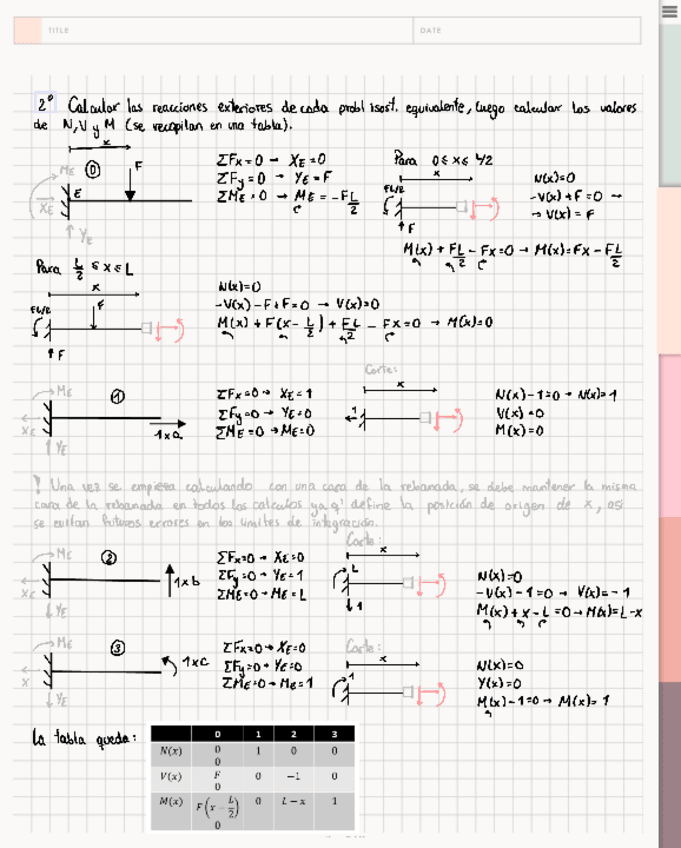 TITLE
DATE
2º Calcular las reacciones exteriores de cada probl isost. equivalente, luego calcular los valores
de N, V y M (se recopilan en una tabla).
x
M_E
⓪
F
E
X_E
Y_E
ΣFx=0 → X_E=0
ΣFy=0 → Y_E=F
ΣM_E=0 → M_E=-F L/2
Para 0≤x≤L/2
x
FL/2
F
N(x)=0
-V(x)+F=0 →
→ V(x)=F
M(x)+FL/2-Fx=0 → M(x)=Fx-FL/2
Para L/2 ≤x≤L
x
FL/2
F
F
N(x)=0
-V(x)-F+F=0 → V(x)=0
M(x)+F(x-L/2)+FL/2-Fx=0 → M(x)=0
M_E
①
X_E
Y_E
1xa
ΣFx=0 → X_E=1
ΣFy=0 → Y_E=0
ΣM_E=0 → M_E=0
Corte:
x
1
N(x)-1=0 → N(x)=1
V(x)=0
M(x)=0
! Una vez se empieza calculando con una cara de la rebanada, se debe mantener la misma
cara de la rebanada en todos los calculos ya q' define la posición de origen de x, asi
se evitan futuros errores en los limites de integración.
M_E
②
X_E
Y_E
1xb
ΣFx=0 → X_E=0
ΣFy=0 → Y_E=1
ΣM_E=0 → M_E=L
Corte:
x
L
1
N(x)=0
-V(x)-1=0 → V(x)=-1
M(x)+x-L=0 → M(x)=L-x
M_E
③
X
Y_E
1xc
ΣFx=0 → X_E=0
ΣFy=0 → Y_E=0
ΣM_E=0 → M_E=1
Corte:
x
1
N(x)=0
Y(x)=0
M(x)-1=0 → M(x)=1
La tabla queda:
0 1 2 3
N(x) 0 1 0 0
0
V(x) F 0 −1 0
0
M(x) F(x − L/2) 0 L − x 1
0